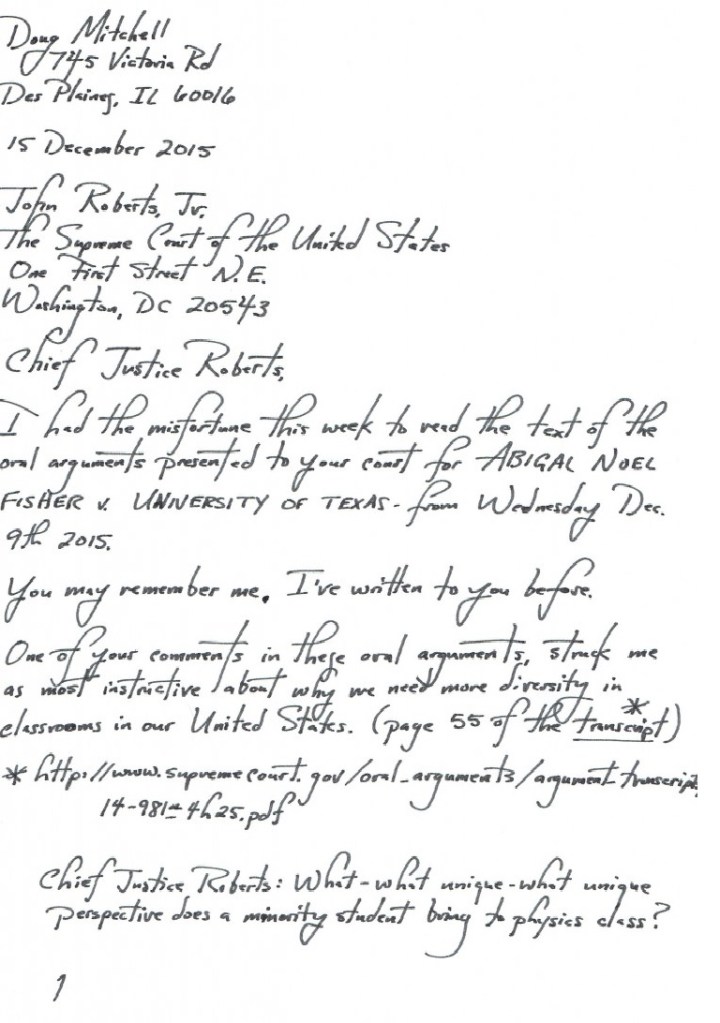 Doug Mitchell
745 Victoria Rd
Des Plaines, IL 60016
15 December 2015
John Roberts, Jr.
The Supreme Court of the United States
One First Street N.E.
Washington, DC 20543
Chief Justice Roberts,
I had the misfortune this week to read the text of the
oral arguments presented to your court for ABIGAL NOEL
FISHER v. UNIVERSITY OF TEXAS - from Wednesday Dec.
9th 2015.
You may remember me. I've written to you before.
One of your comments in these oral arguments, struck me
as most instructive about why we need more diversity in
classrooms in our United States. (page 55 of the transcript)*
* http://www.supremecourt.gov/oral_arguments/argument_transcript
14-981_4h25.pdf
Chief Justice Roberts: What - what unique - what unique
perspective does a minority student bring to physics class?
1